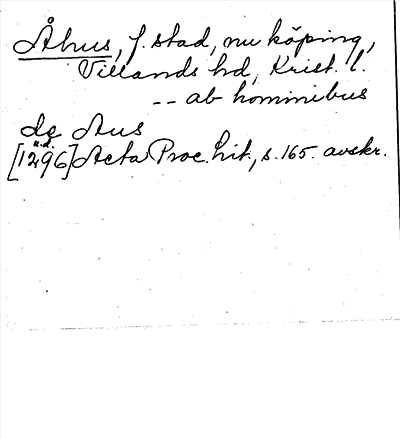 Åhus, f. stad, nu köping,
Villands hd, Krist. l.
-- ab hominibus
de Aus
u.d.
[1296] Acta Proc. lit., s. 165. avskr.